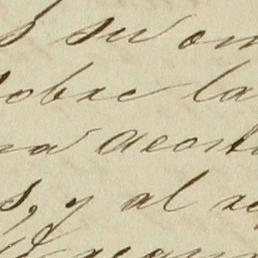 s su om
sobre la
na acost
s, y al re